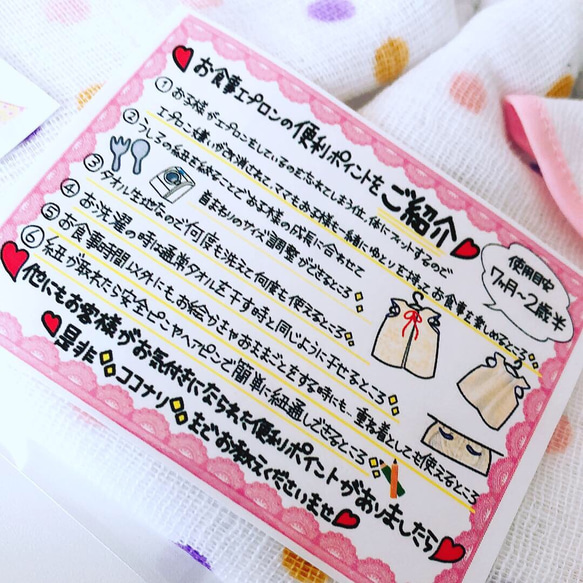 お食事エプロンの便利ポイントをご紹介
① お子様がエプロンをしているのを忘れてしまう位、体にフィットするので
エプロン嫌いが改善されて、ママもお子様と一緒にゆとりを持ってお食事を楽しめるところ
② うしろの紐を結ぶことでお子様の成長に合わせて
首まわりのサイズ調整ができるところ
③ タオル生地なので何度も洗えて何度も使えるところ
④ お洗濯の時は通常タオルを干す時と同じように干せるところ
⑤ お食事時間以外にもお絵かきやおままごとをする時にも、重ね着としても使えるところ
⑥ 紐が取れたら安全ピンやヘアピンで簡単に紐通しできるところ
使用目安
7ヵ月〜2歳半
他にもお客様がお気付きになられた便利ポイントがありましたら
是非ココナリまでお教えくださいませ